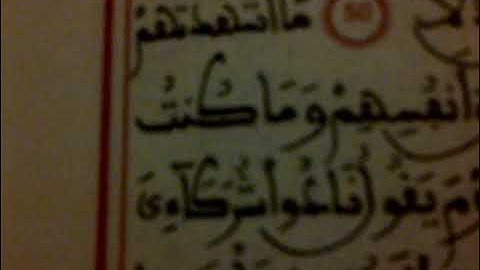 50 مَا أَشْهَدتُّهُمْ
أَنفُسِهِمْ وَمَا كُنتُ
يَقُولُ نَادُوا شُرَكَآءِيَ